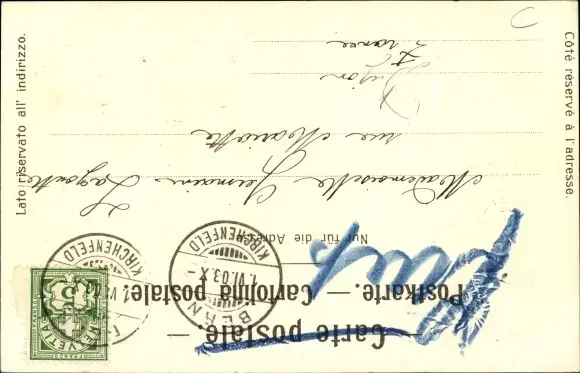 Carte postale. —
Postkarte. — Cartolina postale.
Nur für die Adresse
Côté réservé à l'adresse.
Lato riservato all' indirizzo.
BERN
1.VI.03.X
KIRCHENFELD
KIRCHENFELD
HELVETIA
5
FRANCO
Mademoiselle Germaine
rue Mariotte
Dijon
France